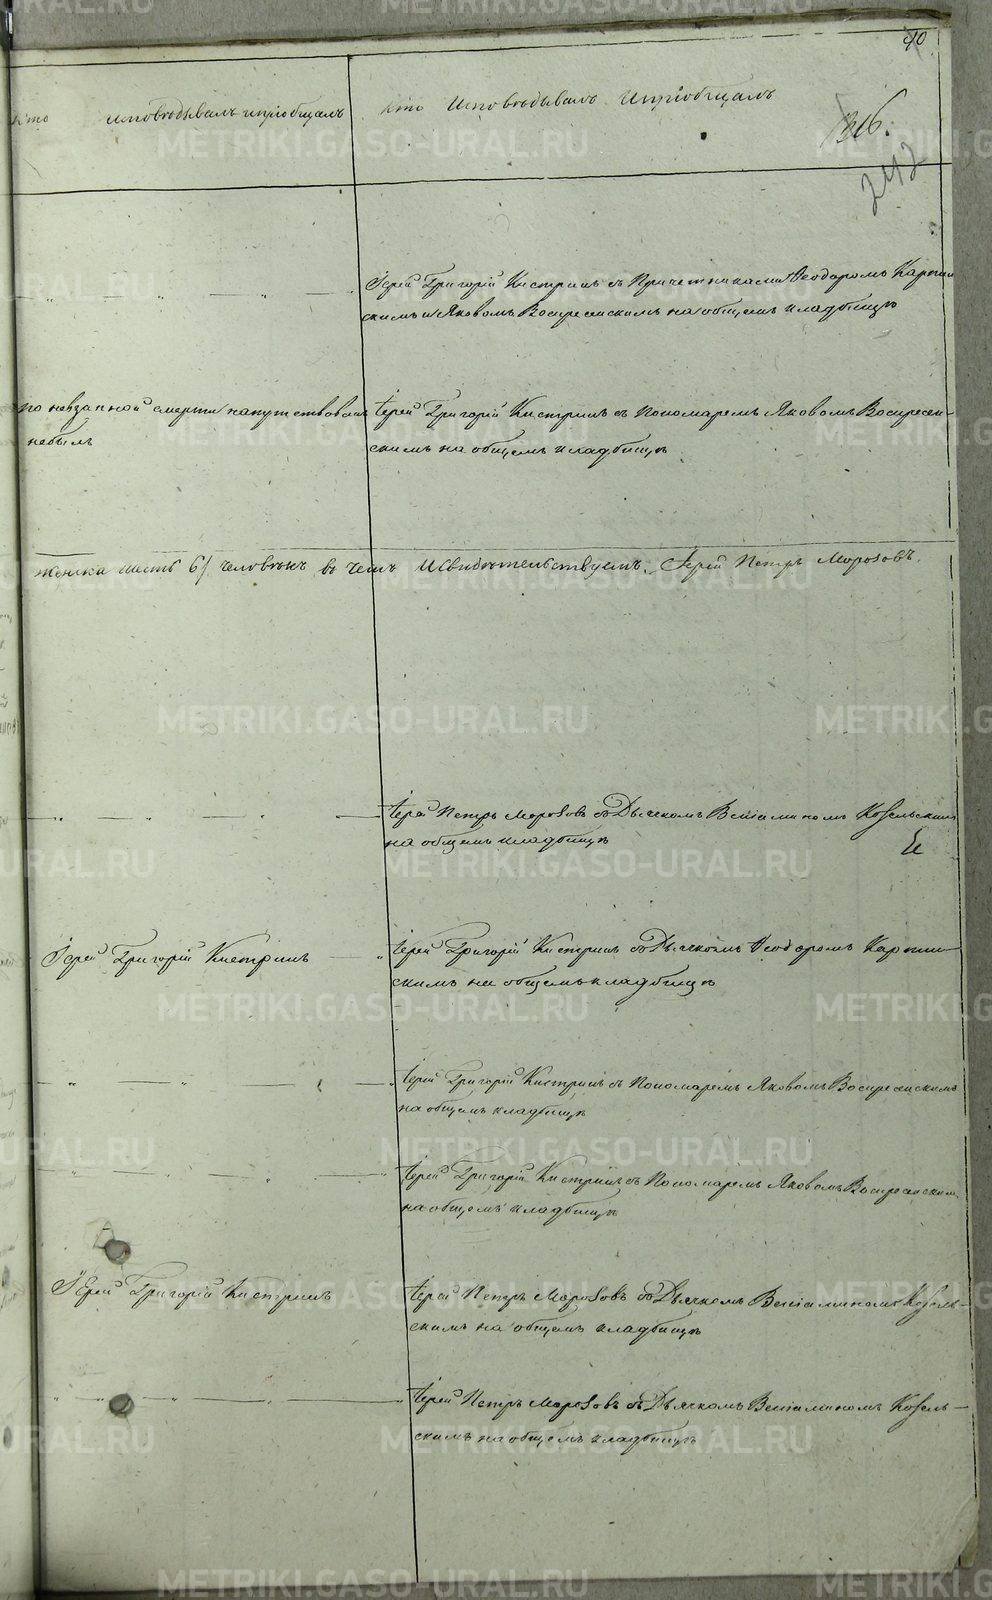 40
Кто исповѣдывалъ и пріобщалъ
Кто Исповѣдывалъ И пріобщалъ
242
Іерей Григорій Кистринъ съ Причетниками Ѳеодоромъ Карпин
скимъ и Яковомъ Воскресенскимъ на общемъ кладбищѣ
по невзапной смерти напутствованъ
небылъ
Іерей Григорій Кистринъ съ Пономаремъ Яковомъ Воскресен-
скимъ на общемъ кладбищѣ
женска шесть 6/ человѣкъ въ чемъ И Свидѣтельствуемъ. Іерей Петръ Морозовъ.
Іерей Петръ Морозовъ съ Дьячкомъ Веніаминомъ Козельскимъ
на общемъ кладбищѣ
Іерей Григорій Кистринъ
Іерей Григорій Кистринъ съ Дьячкомъ Ѳеодоромъ Карпин-
скимъ на общемъ кладбищѣ
Іерей Григорій Кистринъ съ Пономаремъ Яковомъ Воскресенскимъ
на общемъ кладбищѣ
Іерей Григорій Кистринъ съ Пономаремъ Яковомъ Воскресенскимъ
на общемъ кладбищѣ
Іерей Григорій Кистринъ
Іерей Петръ Морозовъ съ Дьячкомъ Веніаминомъ Козель-
скимъ на общемъ кладбищѣ
Іерей Петръ Морозовъ съ Дьячкомъ Веніаминомъ Козель-
скимъ на общемъ кладбищѣ
METRIKI.GASO-URAL.RU